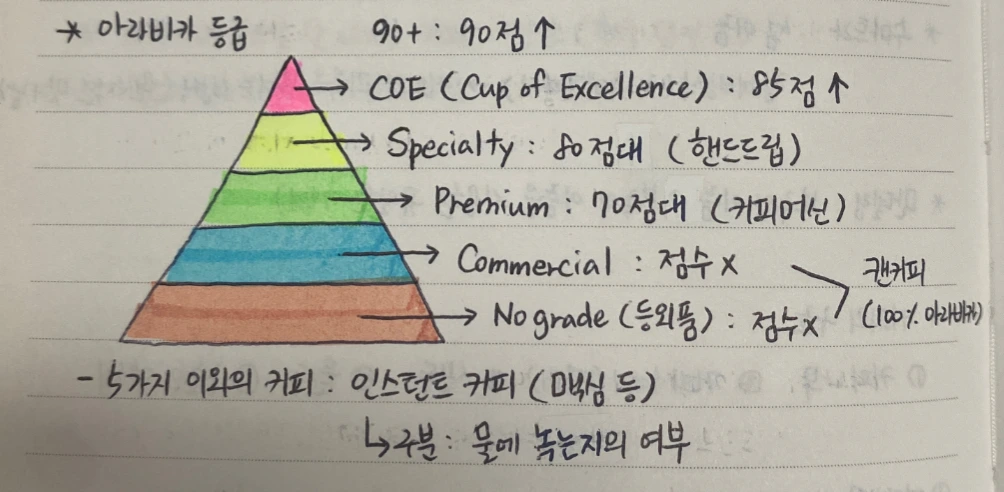 * 아라비카 등급
90+ : 90점 ↑
→ COE (Cup of Excellence) : 85점 ↑
→ Specialty : 80점대 (핸드드립)
→ Premium : 70점대 (커피머신)
→ Commercial : 점수 x
→ No grade (등외품) : 점수x
캔커피
(100% 아라비카)
- 5가지 이외의 커피 : 인스턴트 커피 (맥심 등)
↳ 구분 : 물에 녹는지의 여부